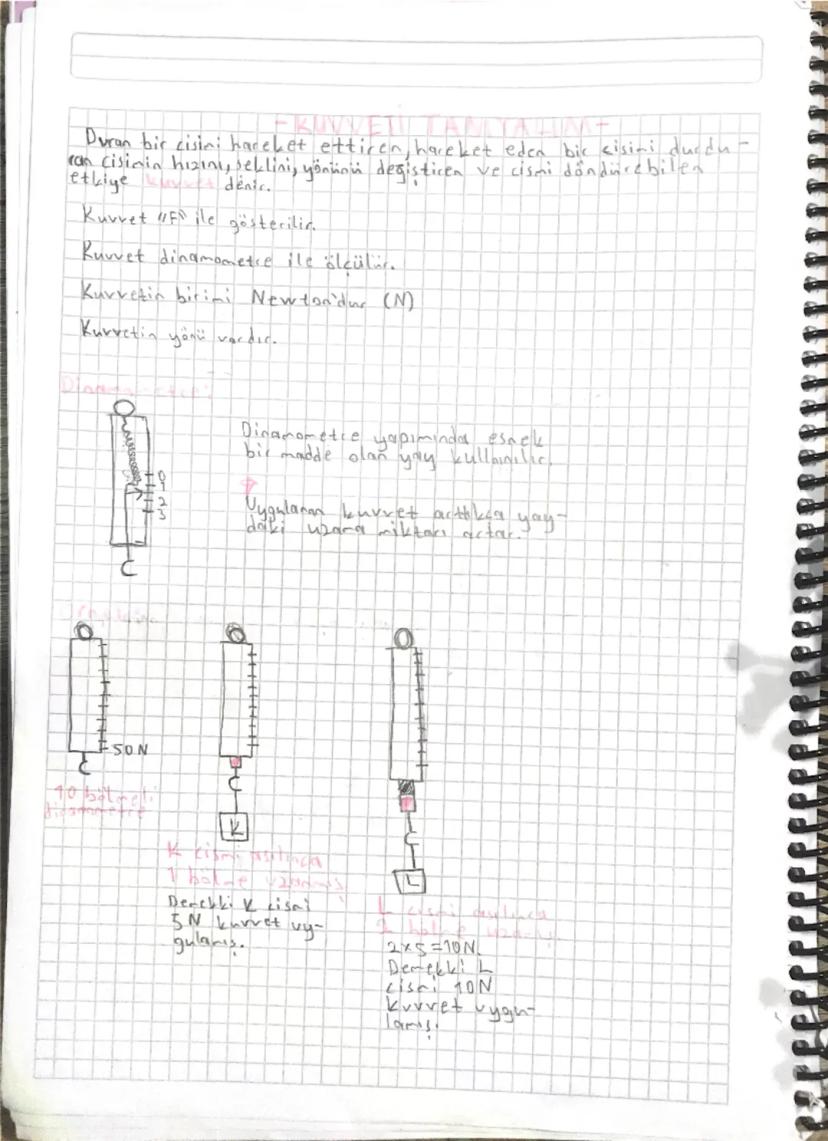 -KUVVETİ TANIYALIM-
Duran bir cisimi hareket ettiren, hareket eden bir cisimi durdu-
ran cisimin hızını, şeklini, yönünü değiştiren ve cismi döndürebilen
etkiye kuvvet denir.
Kuvvet "F" ile gösterilir.
Kuvvet dinamometre ile ölçülür.
Kuvvetin birimi Newton'dur (N)
Kuvvetin yönü vardır.
Dinamometre:
Dinamometre yapımında esnek
bir madde olan yay kullanılır.
0
1
2
3
Uygulanan kuvvet arttıkça yay-
daki uzama miktarı artar.
50N
10 bölmeli
dinamometre
K
K cismi asılınca
1 bölme uzamış
Demekki K cismi
5N kuvvet uy-
gulamış.
L
L cismi asılınca
2 bölme uzamış
2x5=10N
Demekki L
cismi 10N
kuvvet uygu-
lamış.